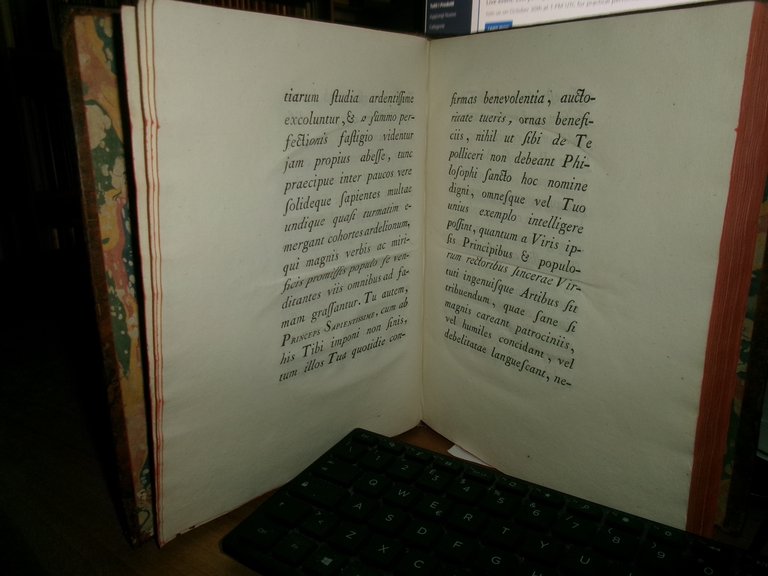 tiarum ſtudia ardentiſſime
excoluntur, & a ſummo per-
fectionis faſtigio videntur
jam propius abeſſe, tunc
praecipue inter paucos vere
ſolideque ſapientes multae
undique quaſi turmatim e-
mergant cohortes ardelionum,
qui magnis verbis ac miri-
ficis promiſſis populo ſe ven-
ditantes viis omnibus ad fa-
mam graſſantur. Tu autem,
PRINCEPS SAPIENTISSIME, cum ab
his Tibi imponi non ſinis,
tum illos Tua quotidie con-
firmas benevolentia, aucto-
ritate tueris, ornas benefi-
ciis, nihil ut ſibi de Te
polliceri non debeant Phi-
loſophi ſancto hoc nomine
digni, omneſque vel Tuo
unius exemplo intelligere
poſſint, quantum a Viris ip-
ſis Principibus & populo-
rum rectoribus ſincerae Vir-
tuti ingenuiſque Artibus ſit
tribuendum, quae ſane ſi
magnis careant patrociniis,
vel humiles concidant, vel
debelitatae langueſcant, ne-
Q W E R T Y U
A S D F G H
Z X C